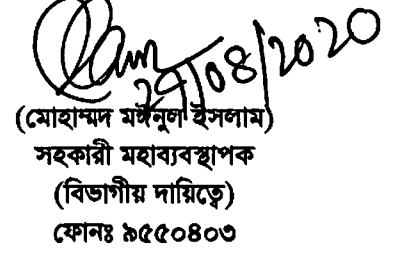 ২৭/০৪/২০২০
(মোহাম্মদ মঈনুল ইসলাম)
সহকারী মহাব্যবস্থাপক
(বিভাগীয় দায়িত্বে)
ফোনঃ ৯৫৫০৪০৩